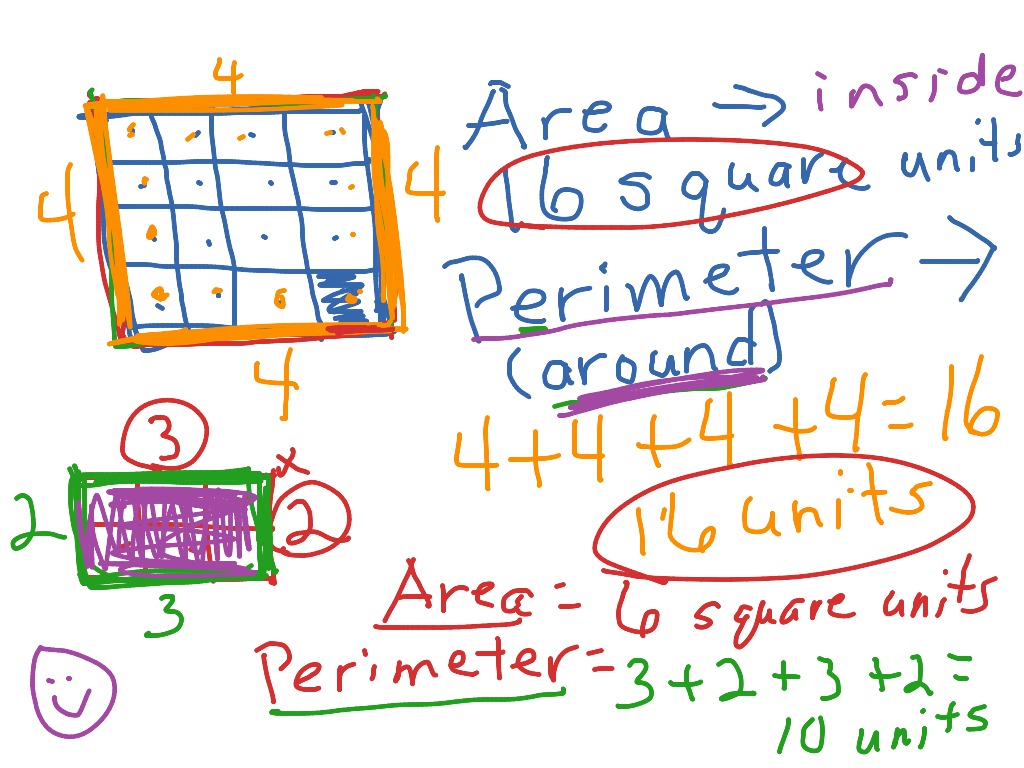 4
4
4
4
Area → inside
16 square units
Perimeter →
(around)
4+4+4+4=16
16 units
3
x
2
2
3
Area = 6 square units
Perimeter = 3+2+3+2=
10 units